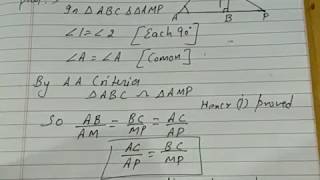 In △ABC & △AMP
A B P
∠1 = ∠2 [Each 90°
∠A = ∠A [Comon]
By AA Criteria
△ABC ~ △AMP
Hence (i) proved
So AB/AM = BC/MP = AC/AP
AC/AP = BC/MP